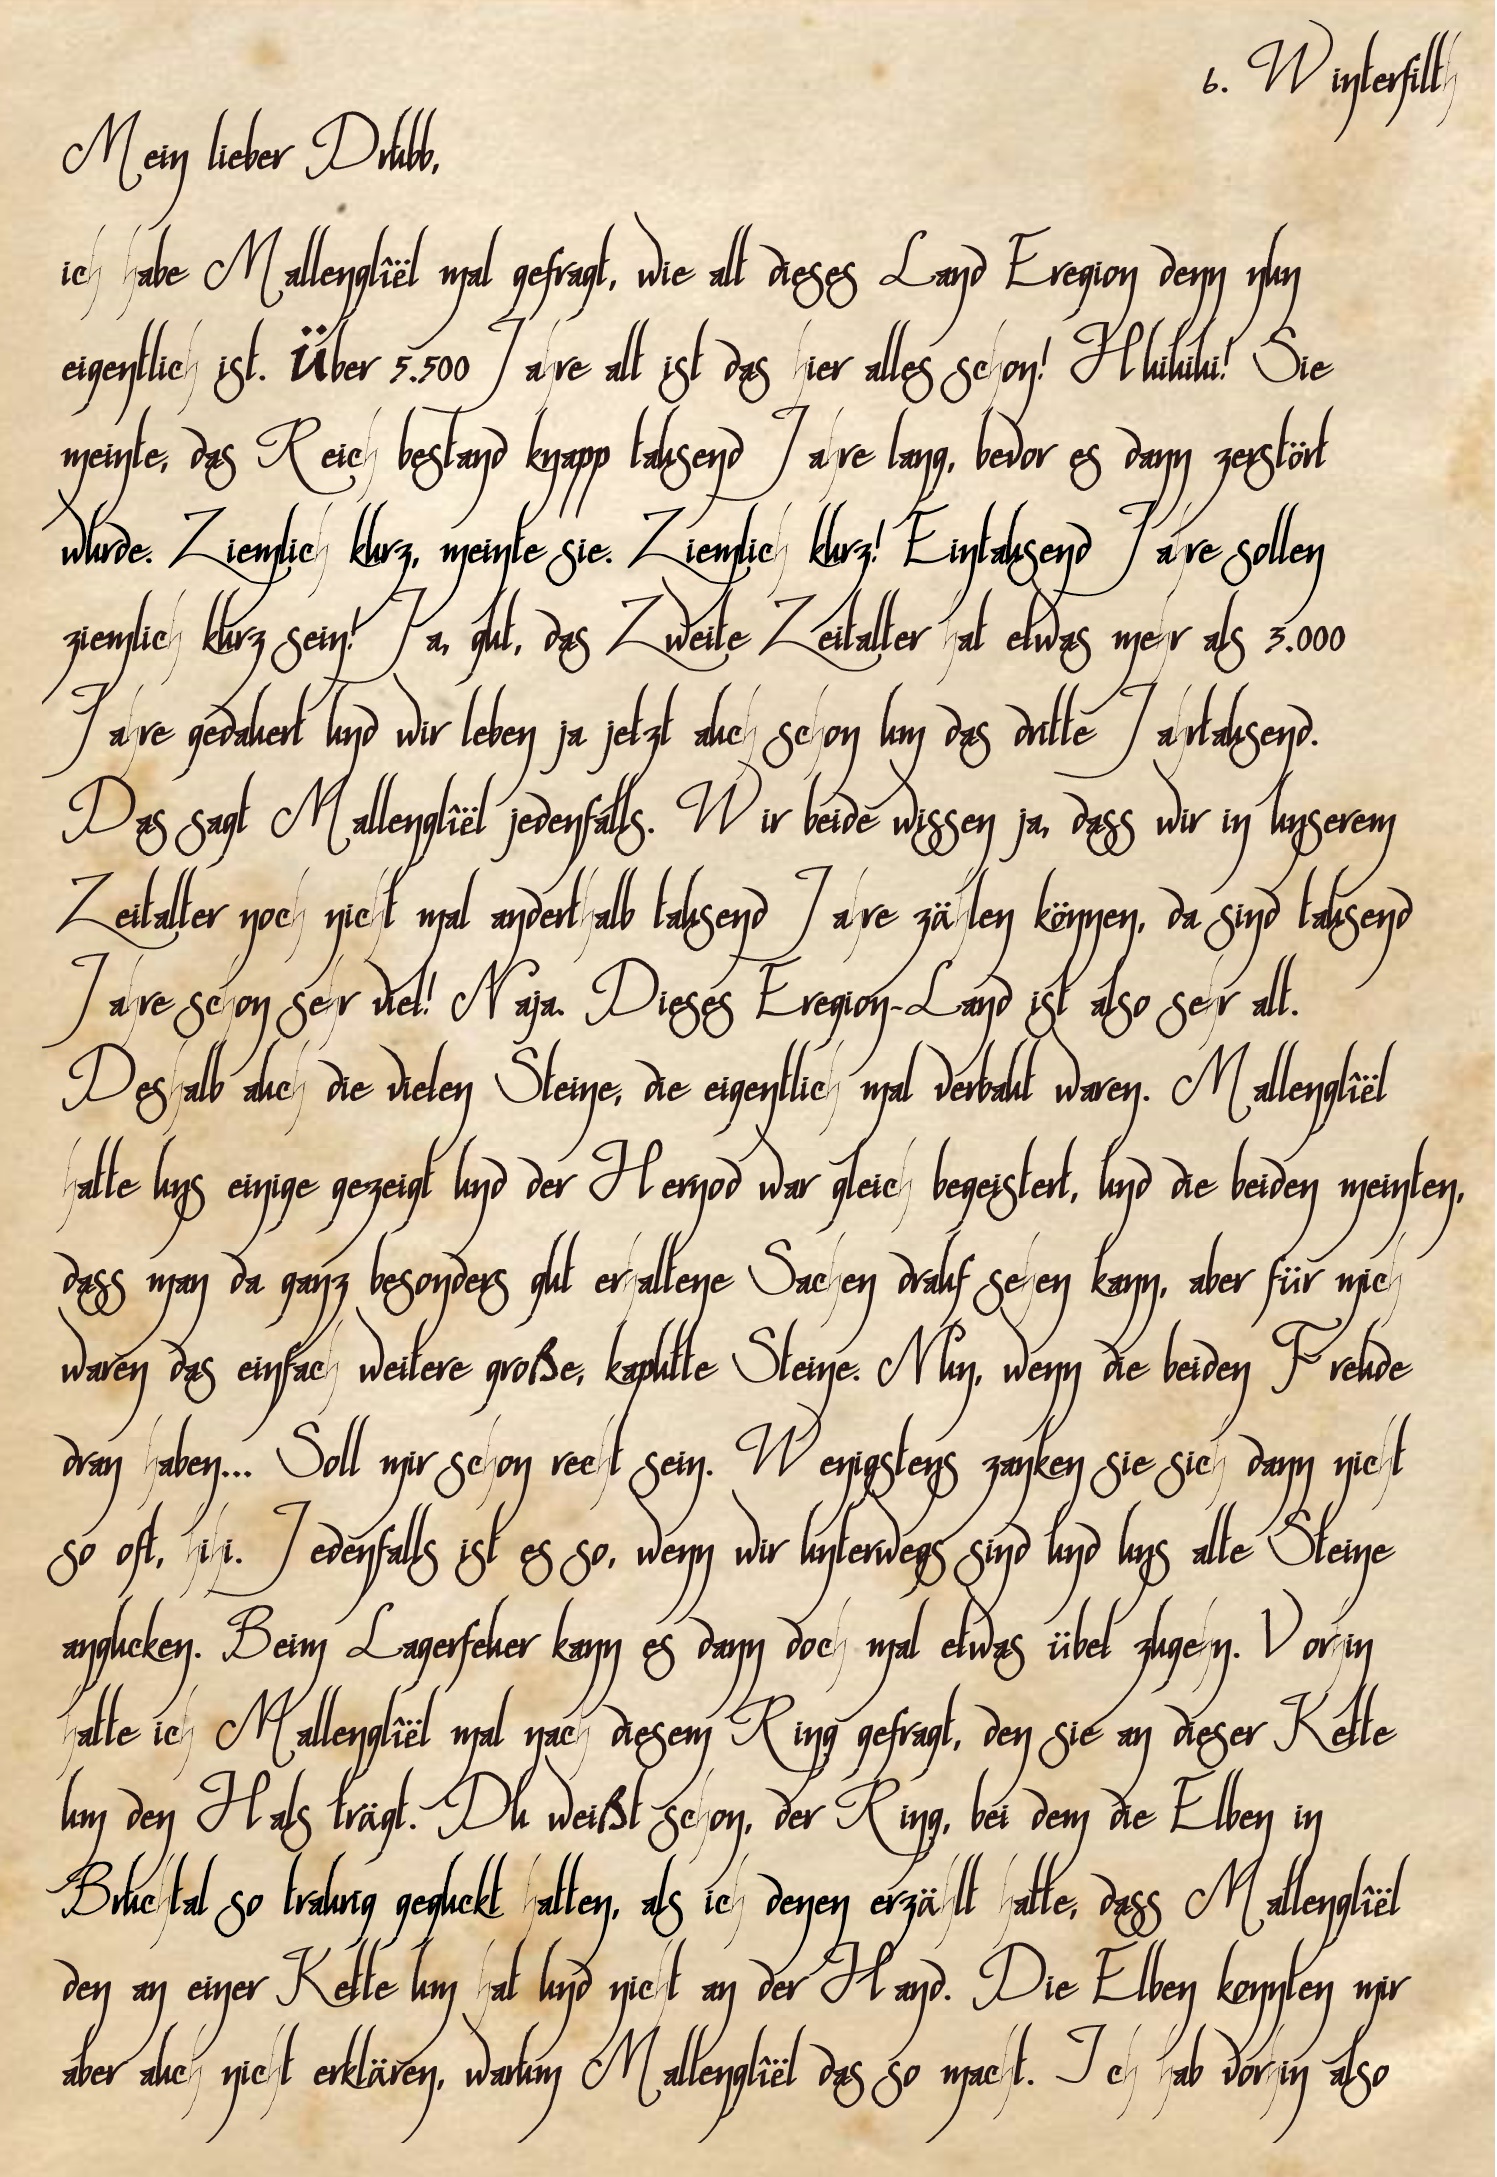 6. Winterfilth
Mein lieber Drubb,
ich habe Mallenglîël mal gefragt, wie alt dieses Land Eregion denn nun
eigentlich ist. Über 5.500 Jahre alt ist das hier alles schon! Huiuiui! Sie
meinte, das Reich bestand knapp tausend Jahre lang, bevor es dann zerstört
wurde. Ziemlich kurz, meinte sie. Ziemlich kurz! Eintausend Jahre sollen
ziemlich kurz sein! Ja, gut, das Zweite Zeitalter hat etwas mehr als 3.000
Jahre gedauert und wir leben ja jetzt auch schon um das dritte Jahrtausend.
Das sagt Mallenglîël jedenfalls. Wir beide wissen ja, dass wir in unserem
Zeitalter noch nicht mal anderthalb tausend Jahre zählen können, da sind tausend
Jahre schon sehr viel! Naja. Dieses Eregion-Land ist also sehr alt.
Deshalb auch die vielen Steine, die eigentlich mal verbaut waren. Mallenglîël
hatte uns einige gezeigt und der Hernod war gleich begeistert, und die beiden meinten,
dass man da ganz besonders gut erhaltene Sachen drauf sehen kann, aber für mich
waren das einfach weitere große, kaputte Steine. Nun, wenn die beiden Freude
dran haben... Soll mir schon recht sein. Wenigstens zanken sie sich dann nicht
so oft, hihi. Jedenfalls ist es so, wenn wir unterwegs sind und uns alte Steine
angucken. Beim Lagerfeuer kann es dann doch mal etwas übel zugehn. Vorhin
hatte ich Mallenglîël mal nach diesem Ring gefragt, den sie an dieser Kette
um den Hals trägt. Du weißt schon, der Ring, bei dem die Elben in
Bruchtal so traurig geguckt hatten, als ich denen erzählt hatte, dass Mallenglîël
den an einer Kette um hat und nicht an der Hand. Die Elben konnten mir
aber auch nicht erklären, warum Mallenglîël das so macht. Ich hab vorhin also